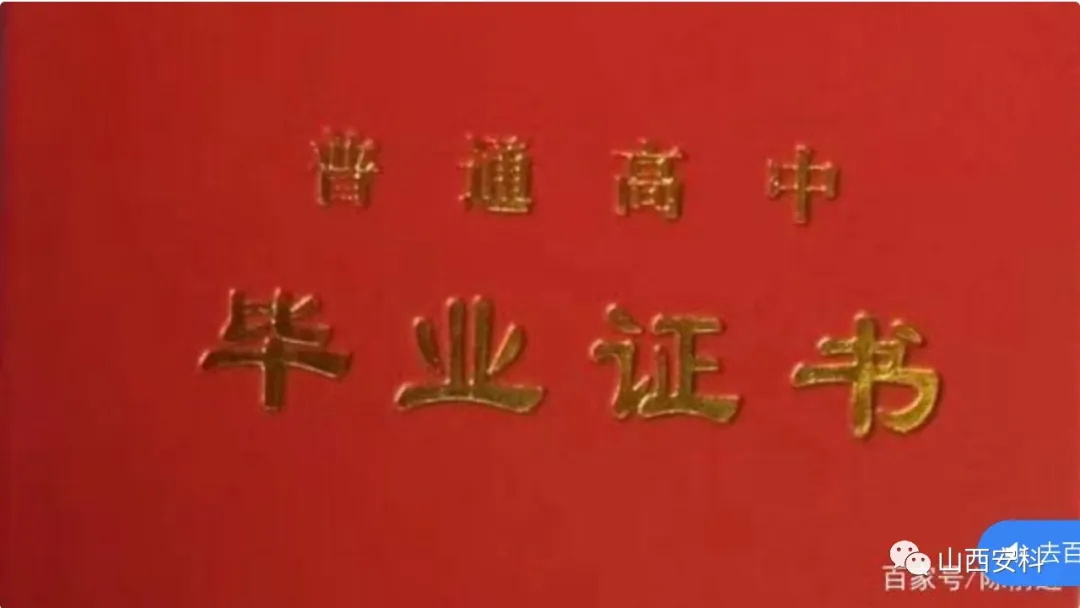 普通高中
毕业证书
山西安科
去百
百家号/陈